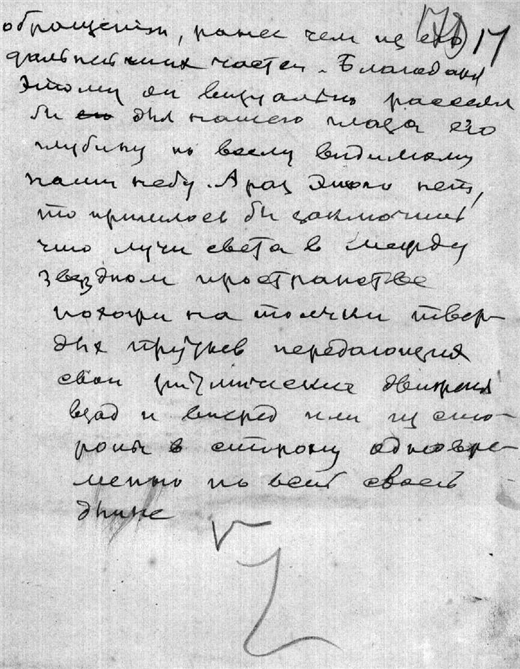 (17) 17
обращении, ранее чем из его
дальнейших частей. Благодаря
этому он визуально рассеял
бы для нашего глаза его
глубину по всему видимому
нами небу. А раз этого нет,
то пришлось бы заключить
что лучи света в между
звездном пространстве
похожи на толчки твер-
дых прутьев передающия
свои ритмические движения
взад и вперед или из сто-
роны в сторону одновре-
менно по всей своей
длине